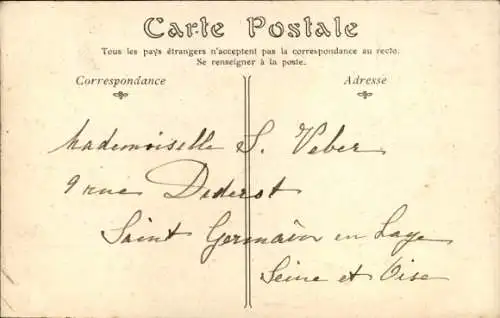 Carte Postale
Tous les pays étrangers n'acceptent pas la correspondance au recto.
Se renseigner à la poste.
Correspondance
Adresse
Mademoiselle S. Veber
9 rue Diderot
Saint Germain en Laye
Seine et Oise